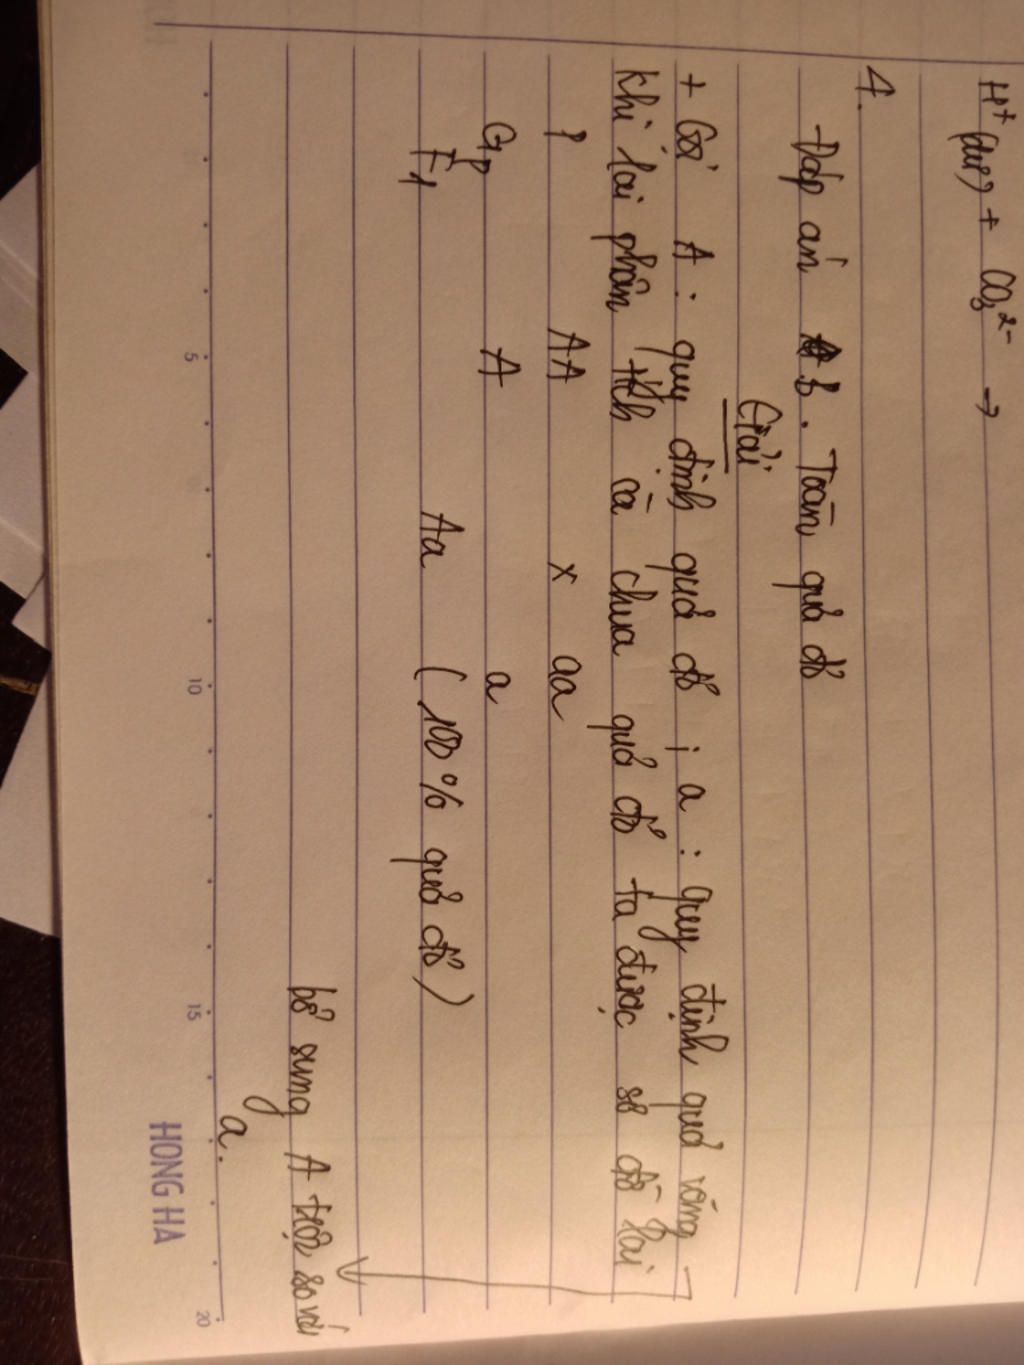 H⁺ (dư) + CO₃²⁻ →
4.
Đáp án B. Toàn quả đỏ
Giải
+ Có A : quy định quả đỏ ; a : quy định quả vàng
Khi lai phân tích cà chua quả đỏ ta được sơ đồ lai
P AA x aa
Gp A a
F1 Aa (100% quả đỏ)
bổ sung A trội so với
a.
5 10 15 20
HONG HA